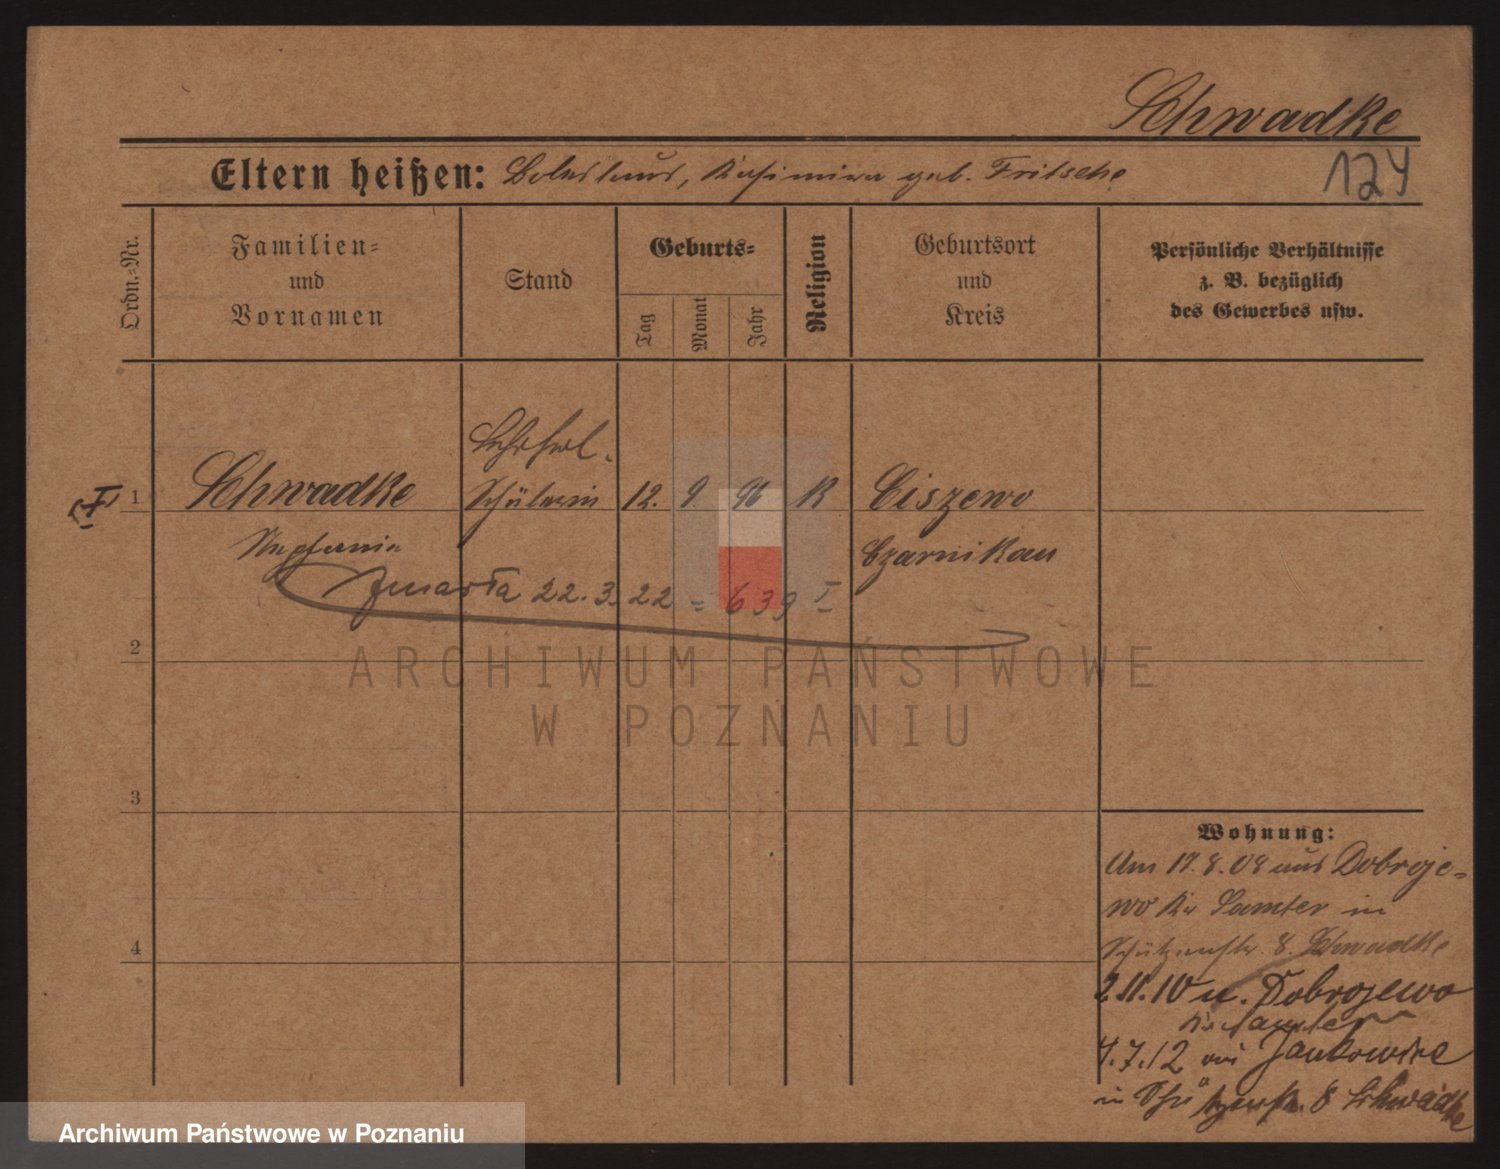 Schwadke
124
Eltern heißen: Boleslaus, Kasimira geb. Fritsche
Ordn.=Nr.
Familien=
und
Vornamen
Stand
Geburts=
Tag
Monat
Jahr
Religion
Geburtsort
und
Kreis
Persönliche Verhältnisse
z. B. bezüglich
des Gewerbes usw.
1
Schwadke
Schülerin
12. 9. 96
K
Ciszewo
Stefania
Czarnikau
Zmarła 22.3.22 = 639 I
2
ARCHIWUM PAŃSTWOWE
W POZNANIU
3
4
Wohnung:
Am 17.8.08 aus Dobroje=
wo Kr Samter in
Schützenstr. 8. Schwadke
2.11.10 n. Dobrojewo
Kr Samter
7.12
in Schützenstr. 8 Schwadke
Archiwum Państwowe w Poznaniu